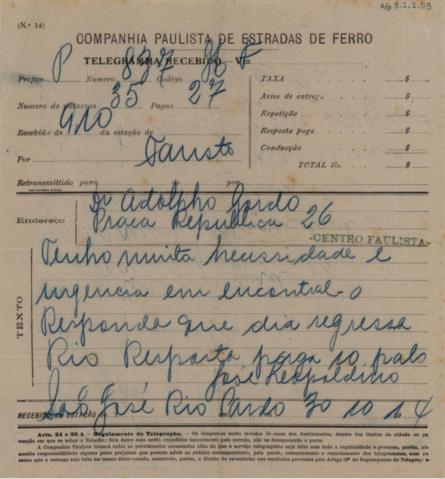 AG 8.2.2.59
(N.º 14)
COMPANHIA PAULISTA DE ESTRADAS DE FERRO
TELEGRAMMA RECEBIDO — Via
Prefixo P Numero 837 Codigo
Numero de palavras 35 Pagas 27
Recebido da estação de
Por Fausto
Retransmittido para às por
TAXA $
Aviso de entrega $
Repetição $
Resposta paga $
Conducção $
TOTAL Rs. $
Endereço
Dr Adolpho Gordo
Praça Republica 26
-CENTRO PAULISTA-
TEXTO
Tenho muita necessidade e
urgencia em encontral-o
Responda que dia regressa
Rio Resposta paga 10 pals
José Leopoldino
RECEBIDO DA ESTAÇÃO DE São José Rio Pardo 30 10 14
Arts. 24 e 28 A — Regulamento do Telegrapho. —